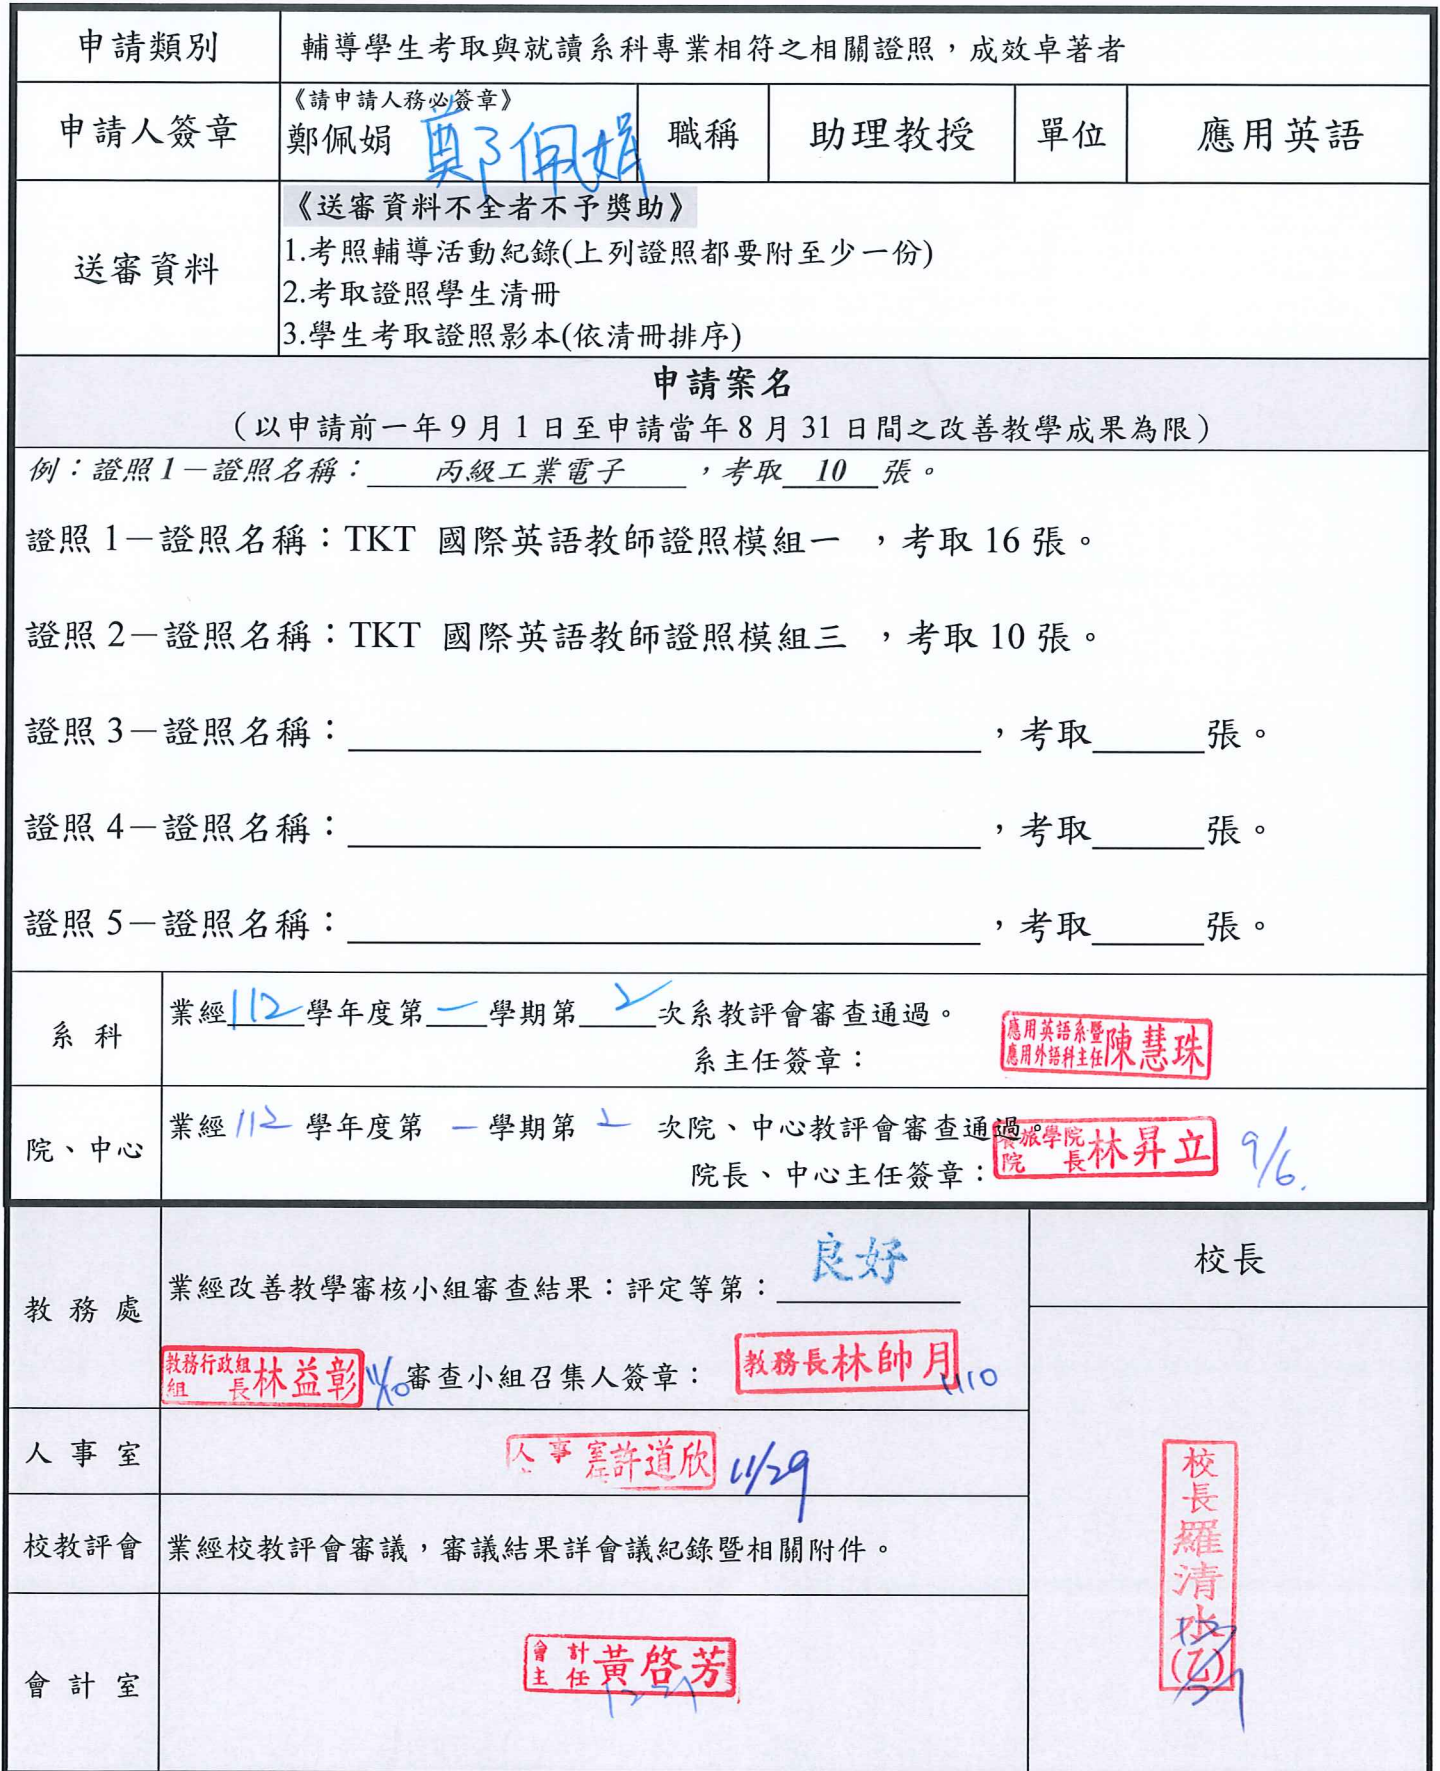 申請類別 輔導學生考取與就讀系科專業相符之相關證照，成效卓著者
《請申請人務必簽章》
申請人簽章 鄭佩娟 鄭佩娟 職稱 助理教授 單位 應用英語
《送審資料不全者不予獎助》
送審資料
1.考照輔導活動紀錄(上列證照都要附至少一份)
2.考取證照學生清冊
3.學生考取證照影本(依清冊排序)
申請案名
（以申請前一年9月1日至申請當年8月31日間之改善教學成果為限）
例：證照1－證照名稱：丙級工業電子，考取10張。
證照1－證照名稱：TKT 國際英語教師證照模組一 ，考取16張。
證照2－證照名稱：TKT 國際英語教師證照模組三 ，考取10張。
證照3－證照名稱：＿＿＿＿，考取＿＿＿張。
證照4－證照名稱：＿＿＿＿，考取＿＿＿張。
證照5－證照名稱：＿＿＿＿，考取＿＿＿張。
系科 業經112學年度第一學期第2次系教評會審查通過。
系主任簽章： 應用英語系暨應用外語科主任 陳慧珠
院、中心 業經112學年度第一學期第2次院、中心教評會審查通過。
院長、中心主任簽章： 餐旅學院院長 林昇立 9/6.
校長
良好
教務處 業經改善教學審核小組審查結果：評定等第：
教務行政組組長 林益彰 11/10 審查小組召集人簽章： 教務長林帥月 1110
人事室 人事室 許道欣 11/29
校教評會 業經校教評會審議，審議結果詳會議紀錄暨相關附件。
會計室 會計主任 黃啓芳
校長羅清水(乙)